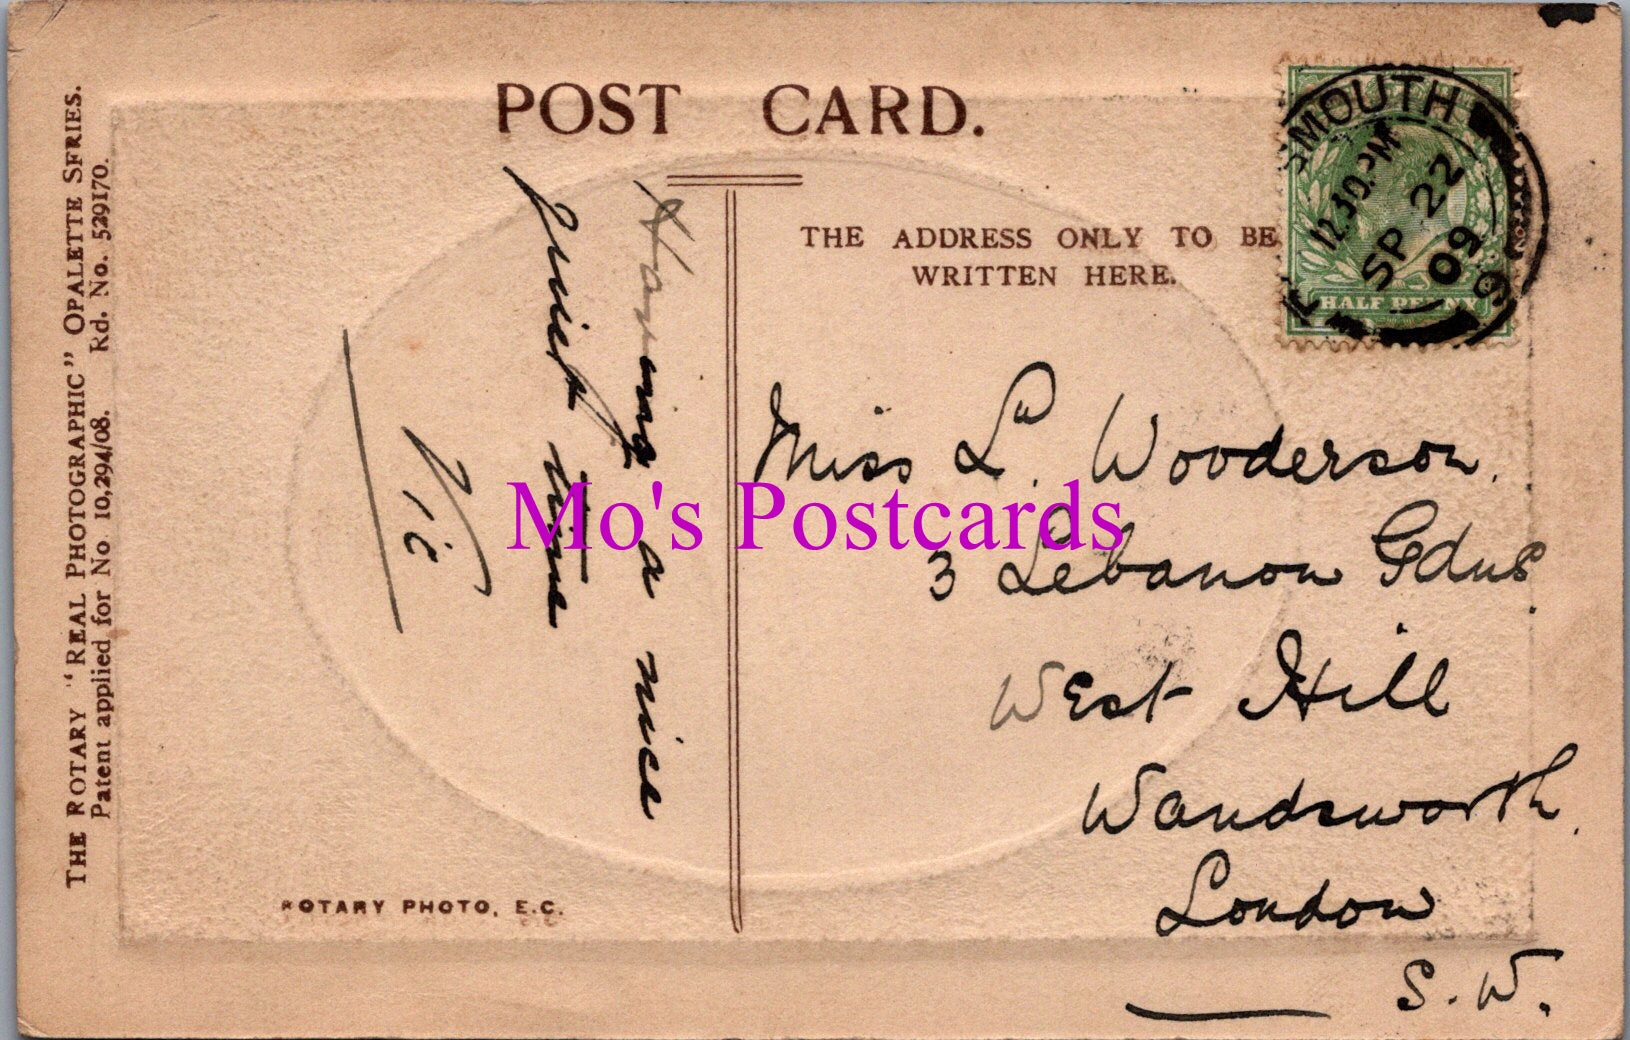 POST CARD.
THE ADDRESS ONLY TO BE
WRITTEN HERE.
THE ROTARY "REAL PHOTOGRAPHIC" OPALETTE SERIES.
Patent applied for No 10,294/08. Rd. No. 529170.
Having a nice
quiet time
Vic
ROTARY PHOTO, E.C.
SMOUTH
12.30.PM
SP 22
09
HALF PENNY
Miss L. Wooderson.
3 Lebanon Gdns.
West Hill
Wandsworth.
London
S.W.
Mo's Postcards